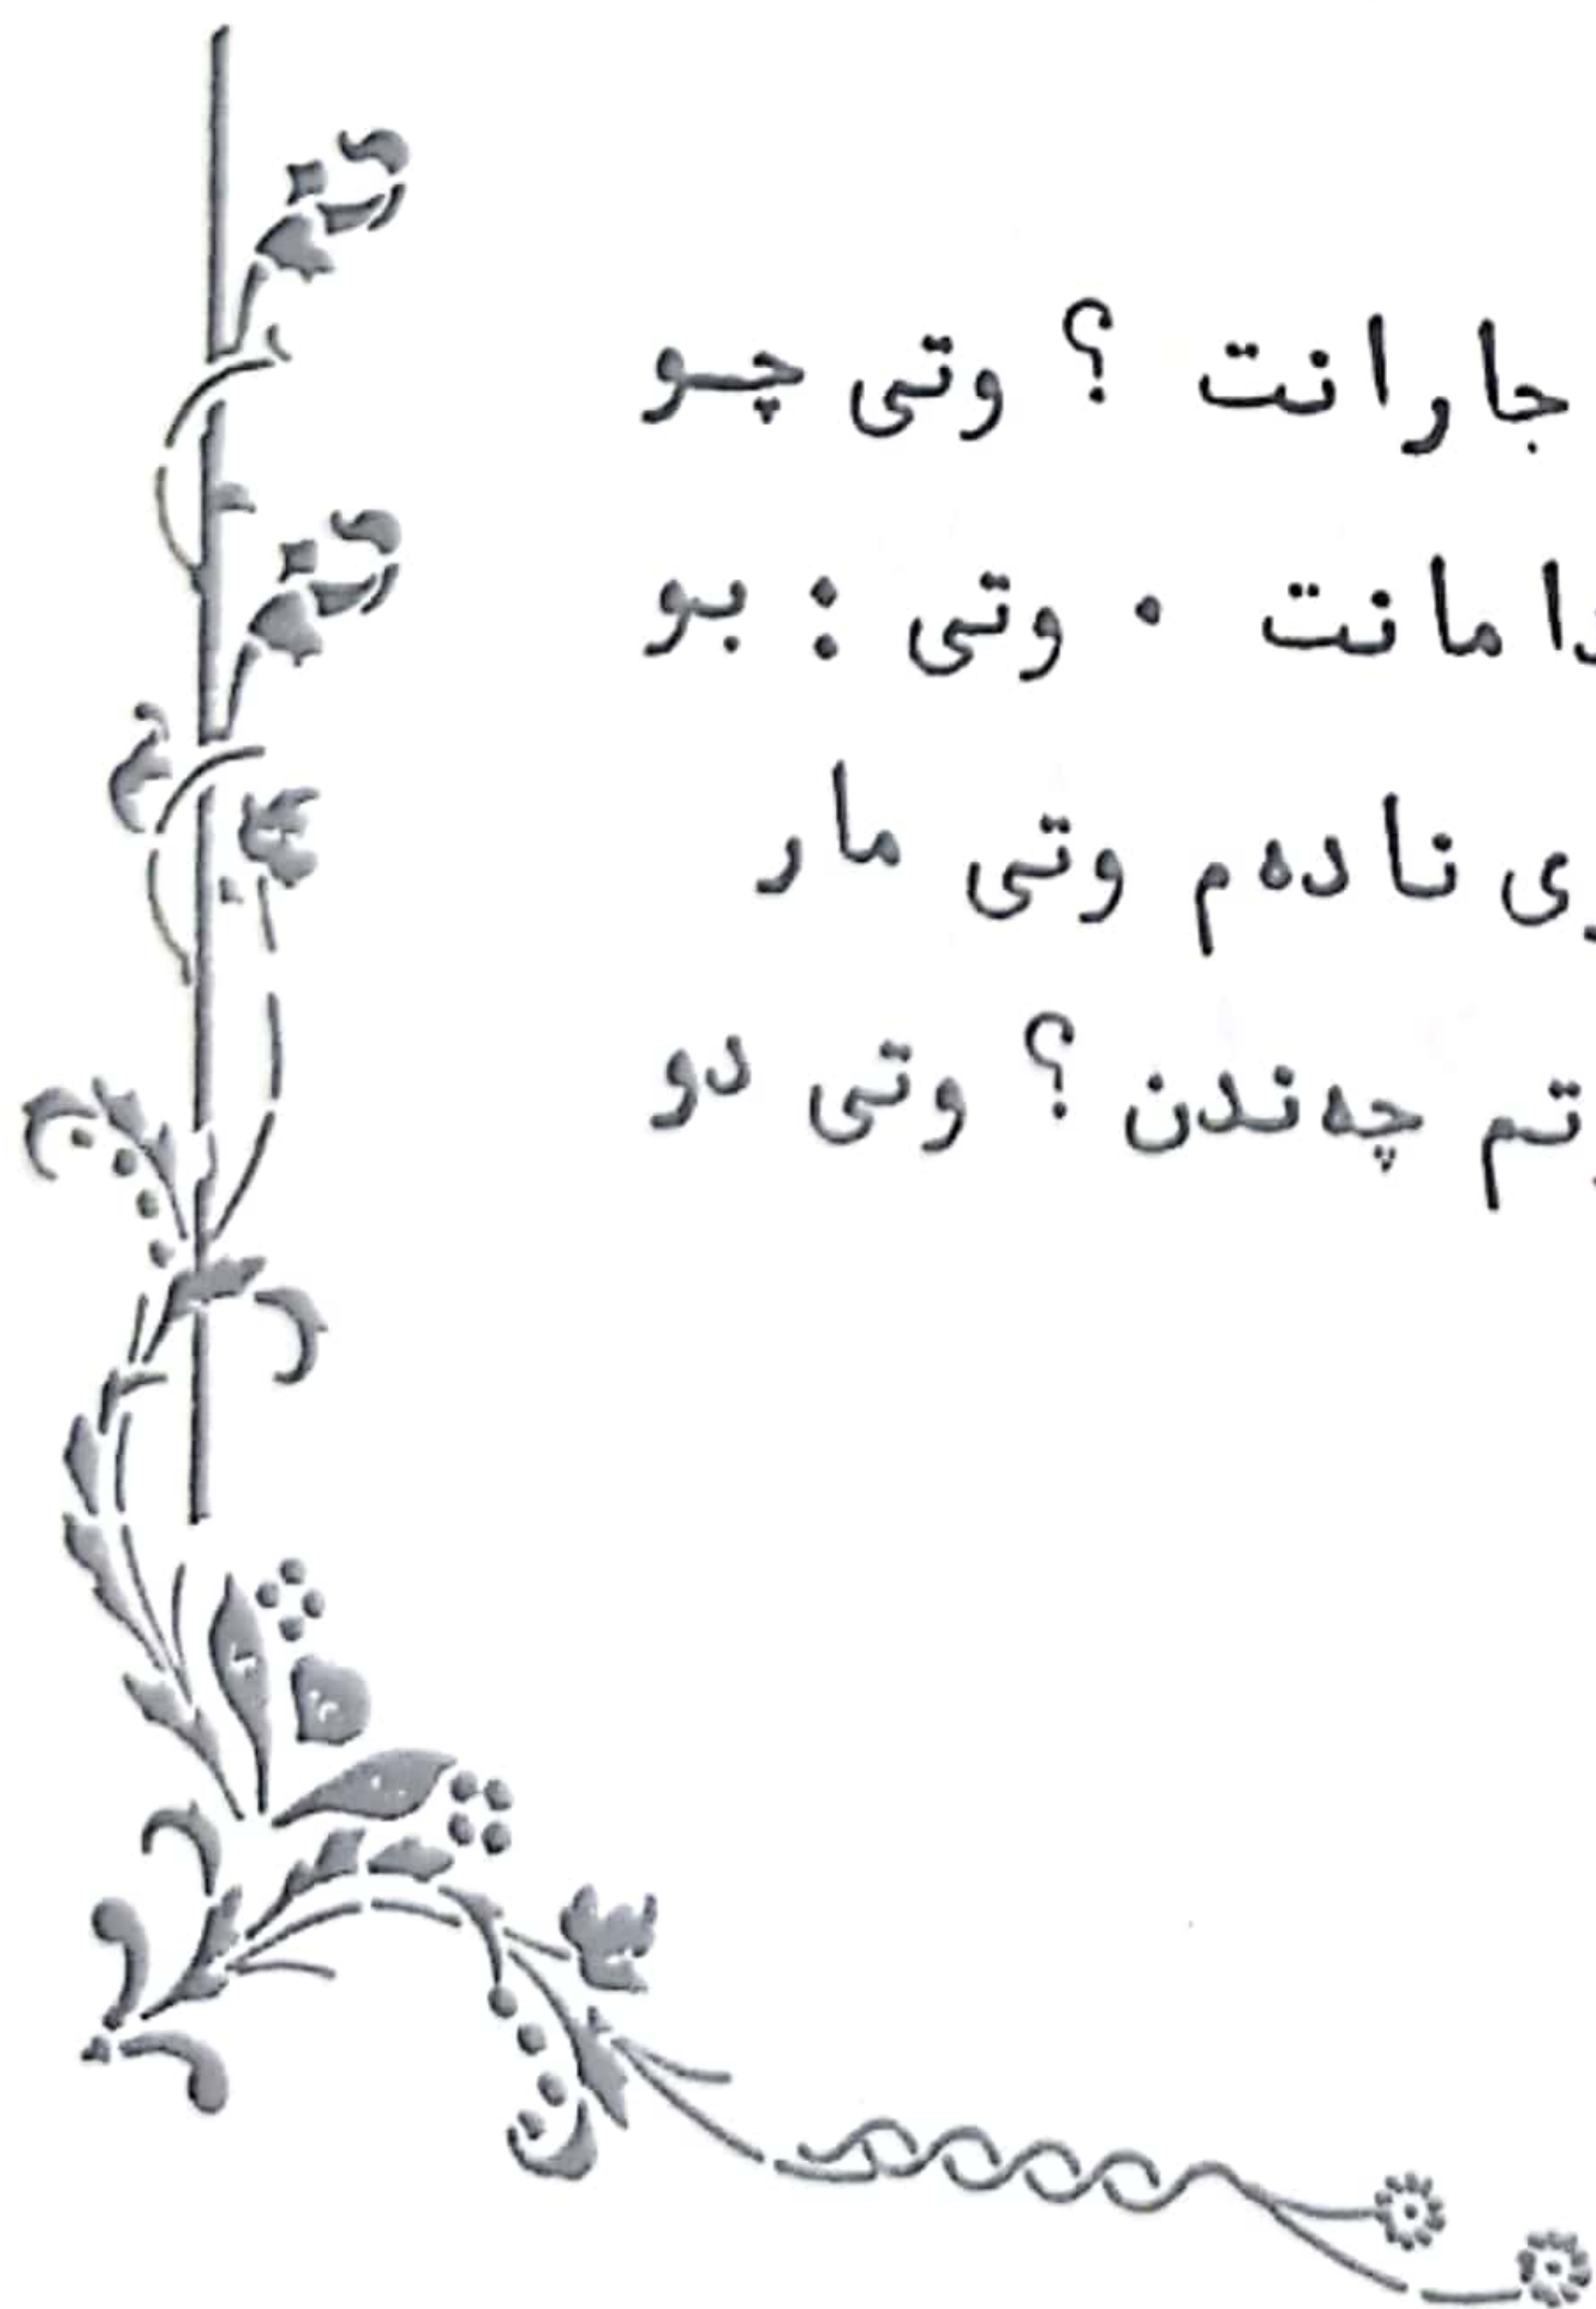 جارانت ؟ وتی چو
مانت . وتی : بو
نادەم وتی مار
چەندن ؟ وتی دو